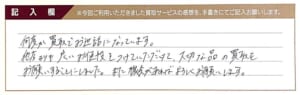 記入欄
※今回ご利用いただきました買取サービスの感想を、手書きにてご記入お願いします。
何度か買取でお世話になっています。
何度よりも 良いお値段をつけていただけて、大切な品の買取を
お願いすることにしました。また機会があればよろしくお願いします。